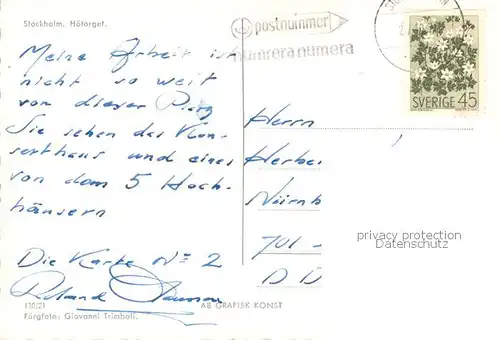 Stockholm. Hötorget.
postnummer
numrera numera
SVERIGE 45
Meine Arbeit ist
nicht so weit
von dieser Platz
Sie sehen das Kon-
serthaus und eines
von dem 5 Hoch-
häusern
Die Karte Nº 2
Roland
Herrn
Herbe
Nürnb
privacy protection
Datenschutz
130/21
AB GRAFISK KONST
Färgfoto: Giovanni Trimboli.